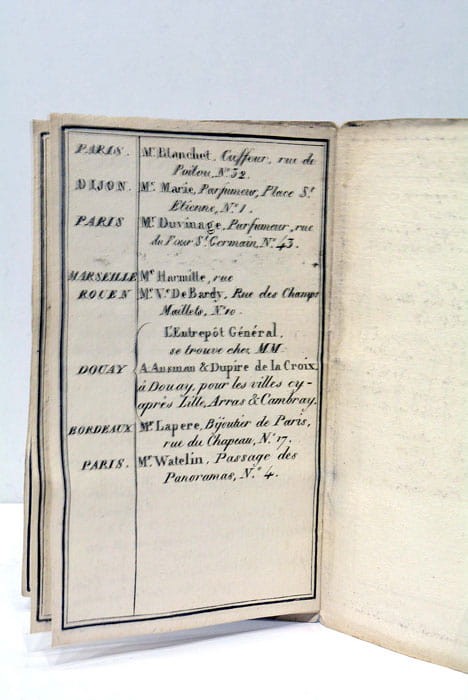 PARIS. Mr. Blanchet, Coëffeur, rue de
Poitou, No. 32.
DIJON. Mr. Marie, Parfumeur, Place St.
Etienne, No. 1.
PARIS Mr. Duvinage, Parfumeur, rue
du Four St. Germain, No. 43.
MARSEILLE Me. Harmitte, rue
ROUEN Mr. Ve. De Bardy, Rue des Champs
Maillets, No. 10.
L'Entrepôt Général,
se trouve chez MM.
DOUAY A. Ansman & Dupire de la Croix,
à Douay, pour les villes cy-
après Lille, Arras & Cambray.
BORDEAUX Mr. Lapere, Bijoutier de Paris,
rue du Chapeau, No. 17.
PARIS. Mr. Watelin, Passage des
Panoramas, No. 4.